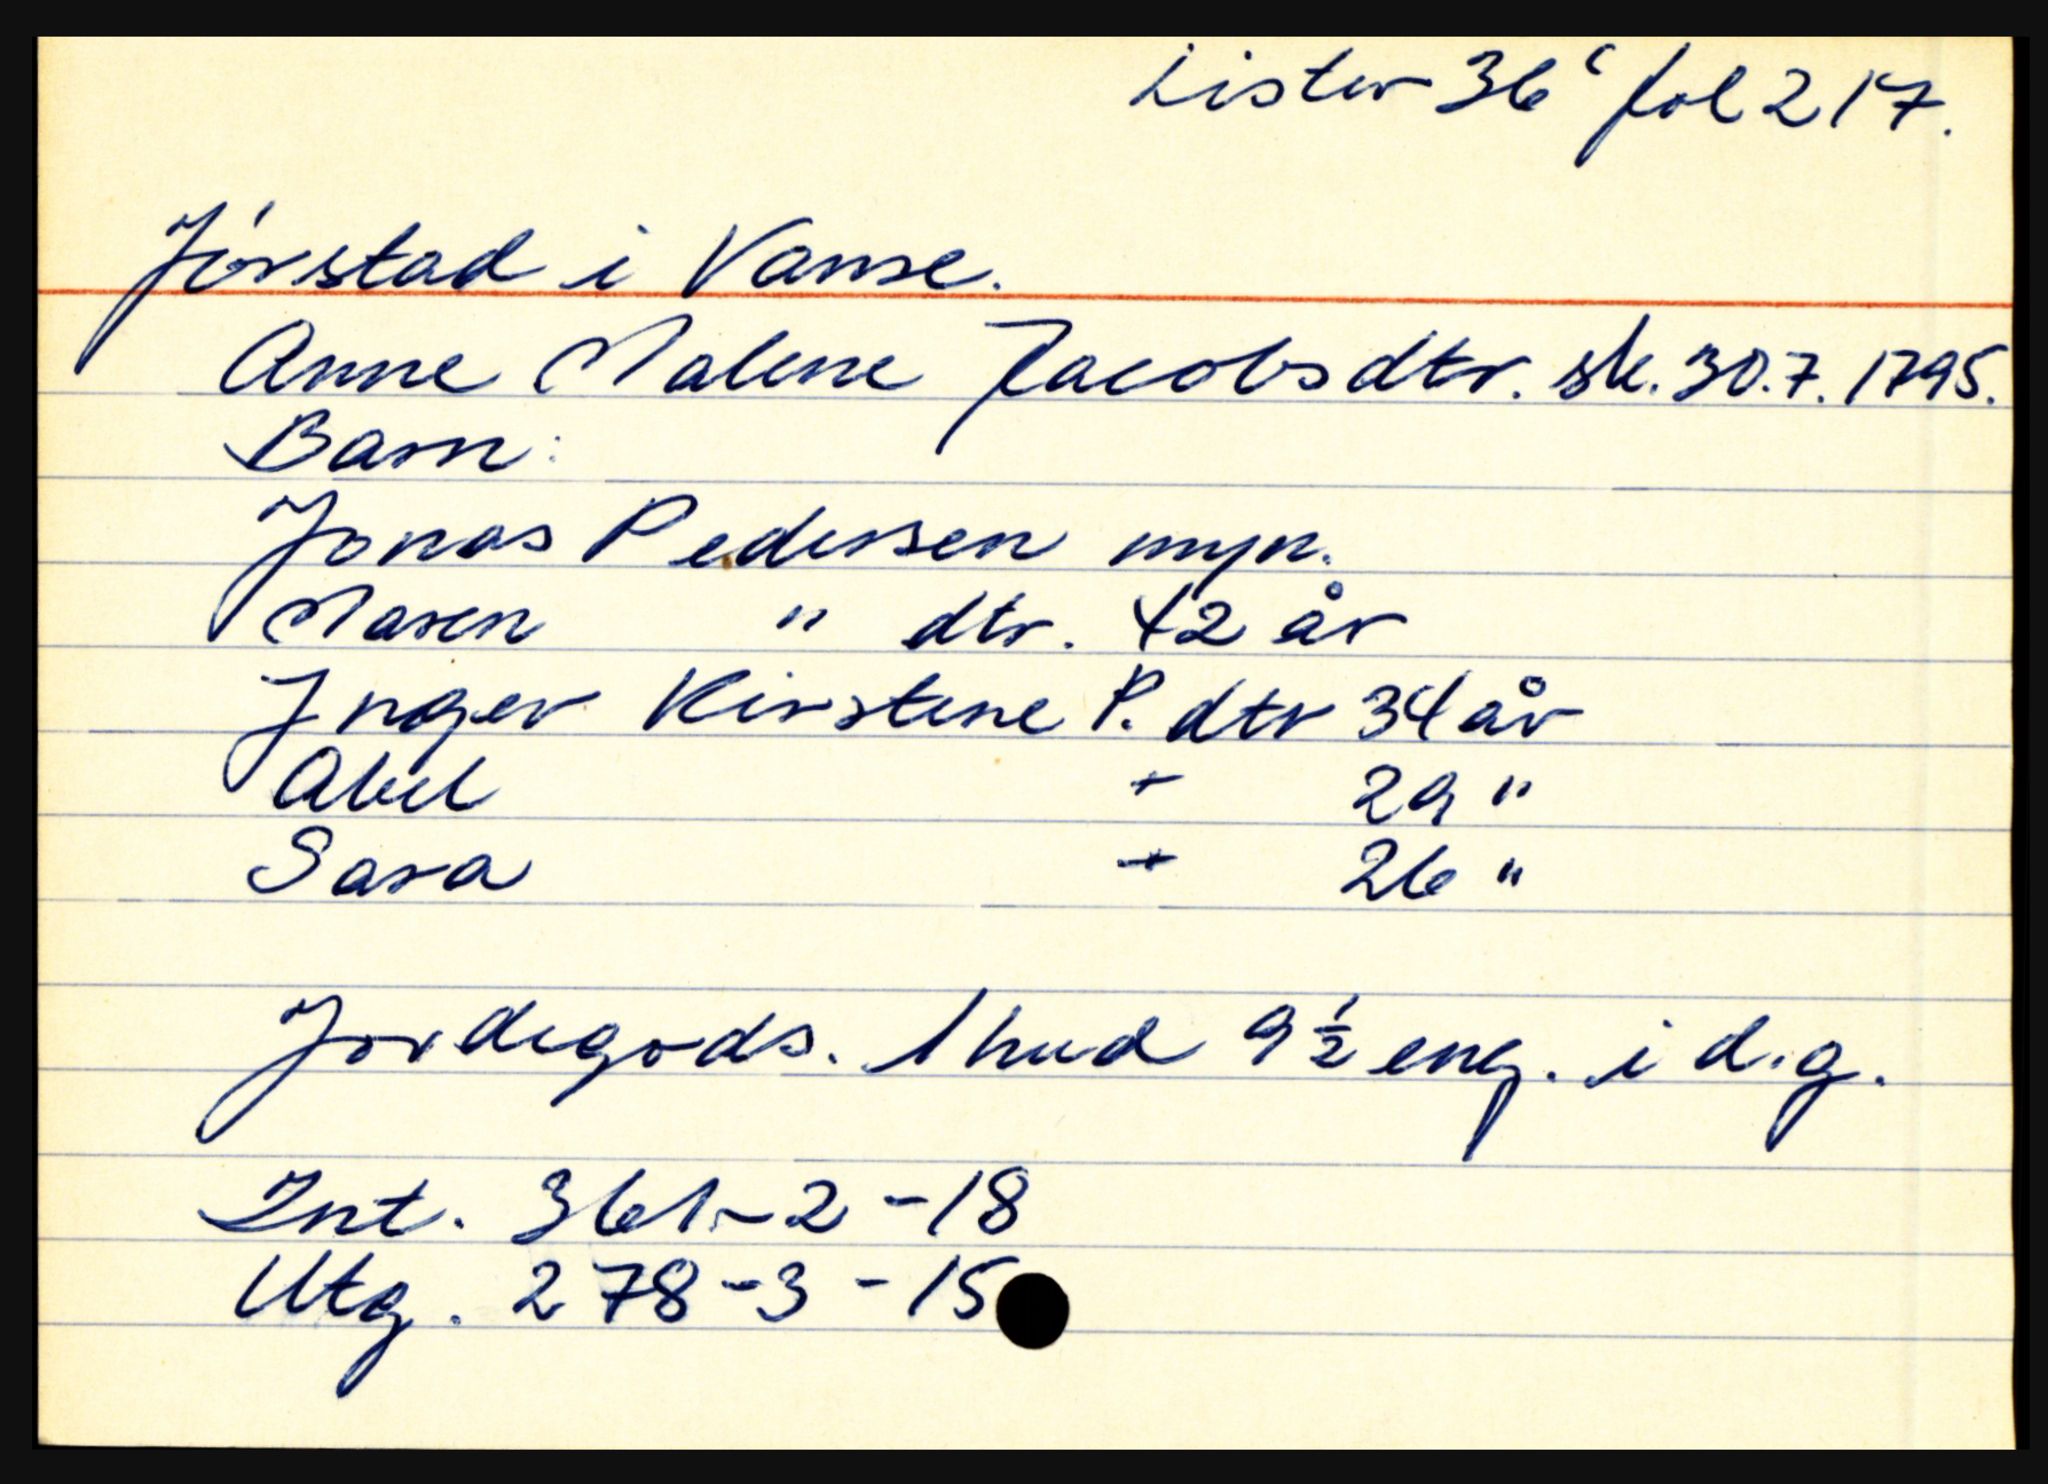 Lister 36c fol 217.
Jørstad i Vanse.
Anne Malene Jacobsdtr. sk. 30.7.1795.
Barn:
Jonas Pedersen myn.
Maren " dtr. 42 år
Inger Kirstene P. dtr 34 år
Abel + 29 "
Sara + 26 "
Jordegods. 1 hud 9 ½ eng. i d.g.
Int. 361-2-18
Utg. 278-3-15